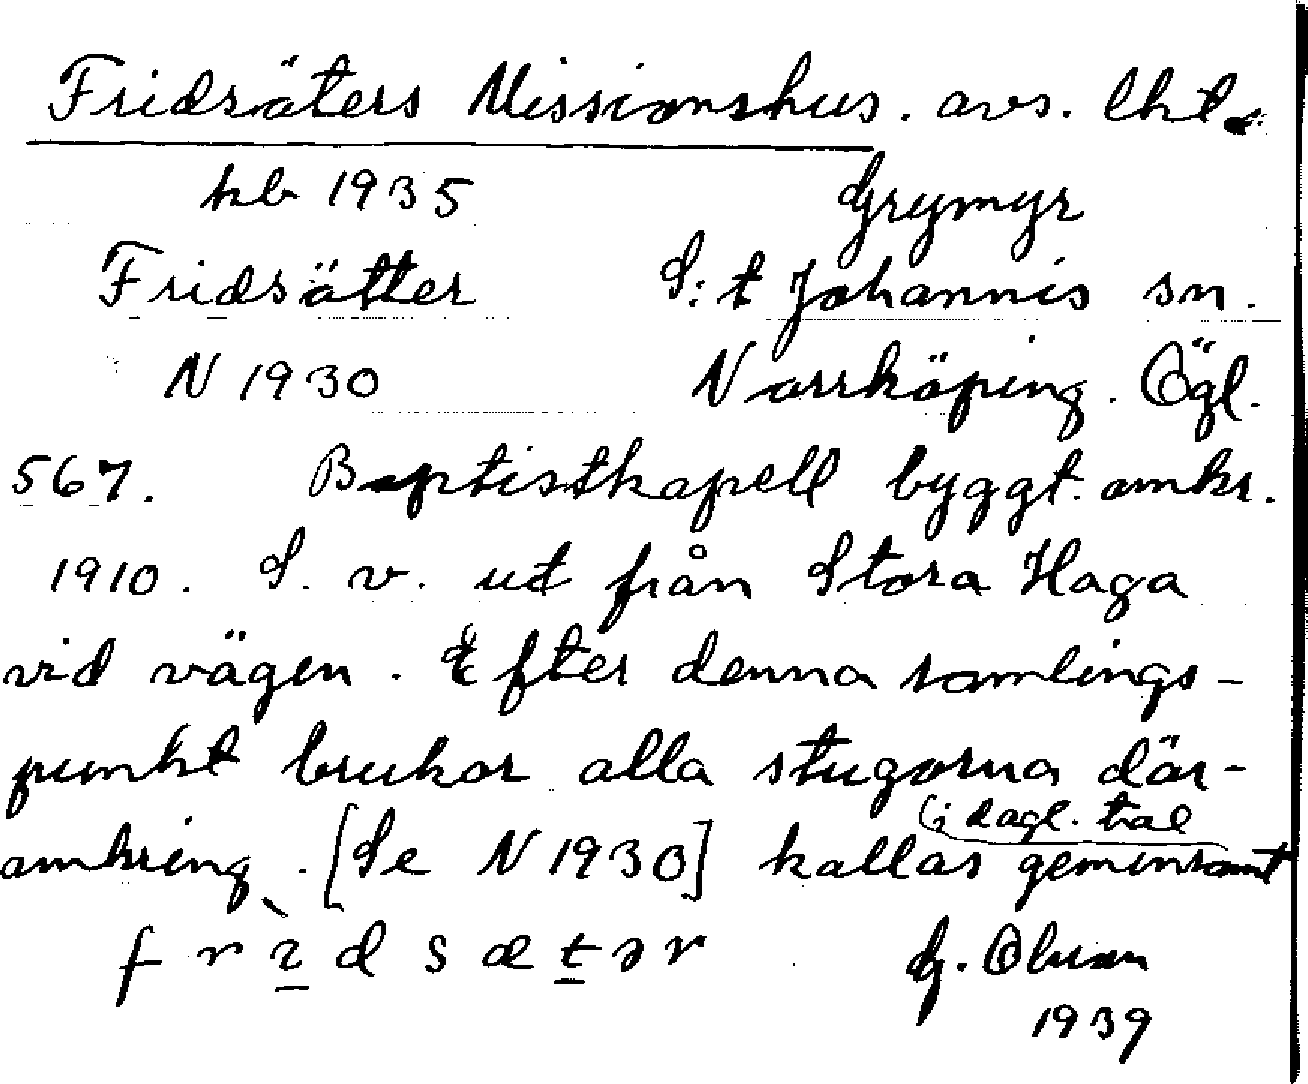 Fridsäters Missionshus. avs. lht.
hb 1935 Grymyr
Fridsätter S:t Johannis sn.
N 1930 Norrköping. Ögl.
567. Baptistkapell byggt omkr.
1910. S. v. ut från Stora Haga
vid vägen. Efter denna samlings-
punkt brukar alla stugorna där-
(i dagl. tal
omkring. [Se N 1930] kallas gemensamt
f r ì d s æ t ə r G.
1939